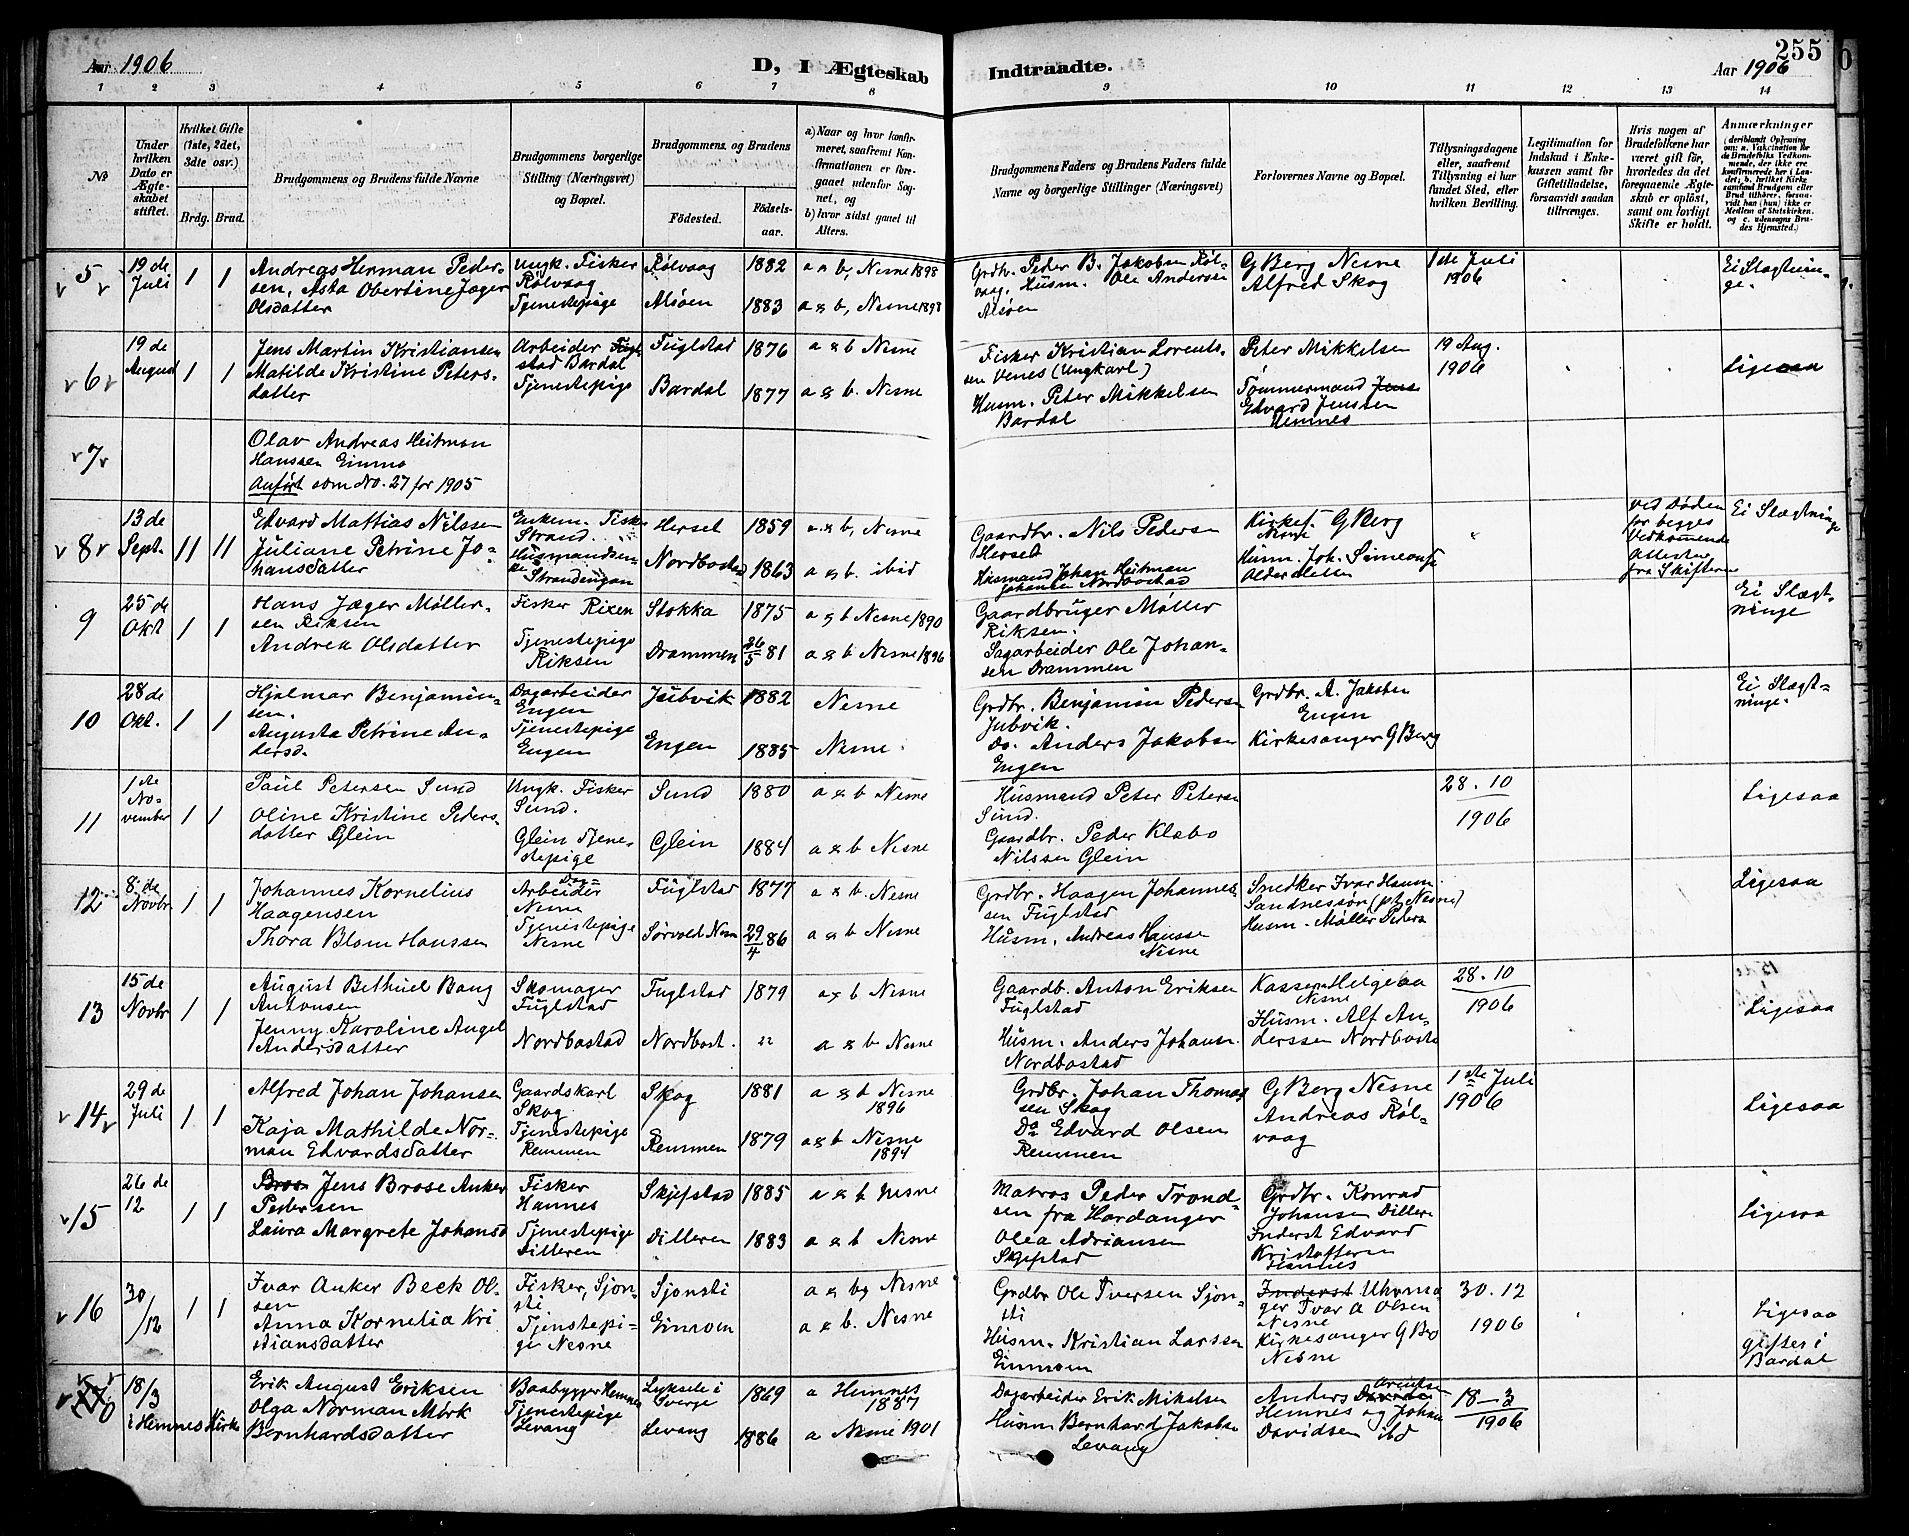 255
Aar 1906
D, I Ægteskab Indtraadte.
Aar 1906
1 2 3 4 5 6 7 8 9 10 11 12 13 14
No
Under hvilken Dato er Ægteskabet stiftet.
Hvilket Gifte (1ste, 2det, 3die osv.)
Brdg. Brud.
Brudgommens og Brudens fulde Navne
Brudgommens borgerlige Stilling (Næringsvei) og Bopæl.
Brudgommens og Brudens
Födested. Födselsaar.
a) Naar og hvor konfirmeret, saafremt Konfirmationen er foregaaet udenfor Sognet, og
b) hvor sidst gaaet til Alters.
Brudgommens Faders og Brudens Faders fulde Navne og borgerlige Stillinger (Næringsvei)
Forlovernes Navne og Bopæl.
Tillysningsdagene eller, saafremt Tillysning ei har fundet Sted, efter hvilken Bevilling.
Legitimation for Indskud i Enkekassen samt for Giftetilladelse, forsaavidt saadan tiltrænges.
Hvis nogen af Brudefolkene har været gift før, hvorledes da det foregaaende Ægteskab er oplöst, samt om lovligt Skifte er holdt.
Anmærkninger
5 19 de Juli 1 1
Andreas Herman Pedersen, Asta Obertine Jæger Olsdatter
Ungk. Fisker Rølvaag
Tjenestepige
Rølvaag 1882 a & b, Nesne 1898
Alsøen 1883 a & b, Nesne 1898
Grdbr. Peder B. Jakobsen Rølvaag. Husm. Ole Andersen Alsøen
G Berg Nesne
Alfred Skog
1ste Juli 1906
Ei Slagtninge.
6 19 de August 1 1
Jens Martin Kristiansen
Matilde Kristine Petersdatter
Arbeider Fuglstad Bardal
Tjenestepige
Fuglstad 1876 a & b Nesne
Bardal 1877 a & b. Nesne
Fisker Kristian Lorentssen Venes (Ungkarl)
Husm. Peter Mikkelsen Bardal
Peter Mikkelsen
Tømmermand Jens Edvard Jenssen Hemnes
19 Aug. 1906
Ligesaa
7
Olav Andreas Heitman Hanssen Einmo
Anført som No. 27 for 1905
8 13 de Sept. 11 11
Edvard Mattias Nilssen
Juliane Petrine Johansdatter
Enkem. Fisker Strand.
Strandengan
Herset 1859 a & b, Nesne
Nordbostad 1863 a & b. ibid
Gaardbr. Nils Pedersen Herset
Husmand Johan Heitman Johansen Nordbostad
Kirkes. G Berg Nesne
Husm. Joh. Simeons. Aldersletten
ved Døden for begges Vedkommende Attester fra Skifteren
Ei Slægtninge
9 25 de Okt 1 1
Hans Jæger Møllersen Riksen
Andrea Olsdatter
Fisker Rixen
Tjenestepige Riksen
Stokka 1875 a & b Nesne 1890
Drammen 26/5 81 a & b Nesne 1896
Gaardbruger Møller Riksen.
Sagarbeider Ole Johansen Drammen
Ei Slægtninge
10 28 de Okt. 1 1
Hjalmar Benjaminsen.
Augusta Petrine Andersd.
Dagarbeider Engen
Tjenestepige Engen
Jubvik 1882 Nesne
Engen 1885 Nesne.
Grdbr. Benjamin Pedersen Jubvik.
Do. Anders Jakobsen Engen
Grdbr. A. Jakobsen Engen
Kirkesanger G Berg
Ei Slægtninge.
11 1ste November 1 1
Paul Petersen Sund
Oline Kristine Pedersdatter Glein
Ungk. Fisker Sund.
Glein Tjenestepige
Sund 1880 a & b Nesne
Glein 1884 a & b Nesne
Husmand Peter Petersen Sund.
Gaardbr. Peder Klabo Nilssen Glein
28.10 1906
Ligesaa
12 8 de Novbr 1 1
Johannes Kornelius Haagensen
Thora Blom Hanssen
Dagarbeider Nesne
Tjenestepige Nesne
Fuglstad 1877 a & b. Nesne
Sørvold Nesn 29/4 86 a & b Nesne
Grdbr. Haagen Johannessen Fuglstad
Husm. Andreas Hansse Nesne
Snedker Ivar Hansen Sandnessøn (pt. Nesne)
Husm. Møller Peders
Ligesaa
13 15 de Novbr 1 1
August Bethuel Bang Antonsen
Jenny Karoline Angel Andersdatter
Skomager Fuglstad
Nordbostad
Fuglstad 1879 a & b Nesne
Nordbost. " a & b Nesne
Gaardb. Anton Eriksen Fuglstad
Husm. Anders Johansn. Nordbostad
Kasser Helgesa Nesne
Husm. Alf Anderssen Nordbosta
28.10 1906
Ligesaa
14 29 de Juli 1 1
Alfred Johan Johansen
Kaja Mathilde Norman Edvardsdatter
Gaardskarl Skog
Tjenestepige Remmen
Skog 1881 a & b Nesne 1896
Remmen 1879 a & b Nesne 1894
Grdbr. Johan Thomassen Skog
Do Edvard Olsen Remmen
G Berg Nesne
Andreas Rølvaag
1ste Juli 1906
Ligesaa
15 26 de 12 1 1
Bros Jens Brose Anker Pedersen
Laura Margrete Johansd
Fisker Hannes
Tjenestepige Dilleren
Skjefstad 1885 a & b Nesne
Dilleren 1883 a & b Nesne
Matros Peder Trondsen fra Hardanger
Olea Adriansen Skjefstad
Grdbr. Konrad Johansen Dillere
Inderst Edvard Kristoffersen Hannes
Ligesaa
16 30/12 1 1
Ivar Anker Beck Olsen
Anna Kornelia Kristiansdatter
Fisker, Sjonsti
Tjenstepige Nesne
Sjonsti a & b, Nesne
Einmoen a & b. Nesne
Grdbr Ole Iversen Sjonsti
Husm. Kristian Larssen Einmoen
Inderst Uhrmager Ivar A Olsen Nesne
Kirkesanger G Berg Nesne
30.12 1906
Ligesaa
giftes i Bardal
18/3 i Hemnes Kirke
Erik August Eriksen
Olga Norman Mörk Bernhardsdatter
Baabygger Hemnes
Tjenestepige Levang
Lyksele i Sverge 1869 a Hemnes 1887
Levang 1886 a Nesne 1901
Dagarbeider Erik Mikelsen
Husm Bernhard Jakobsen Levang
Anders Arentsen Hemnes og Johan Davidsen ibd
18–3 1906